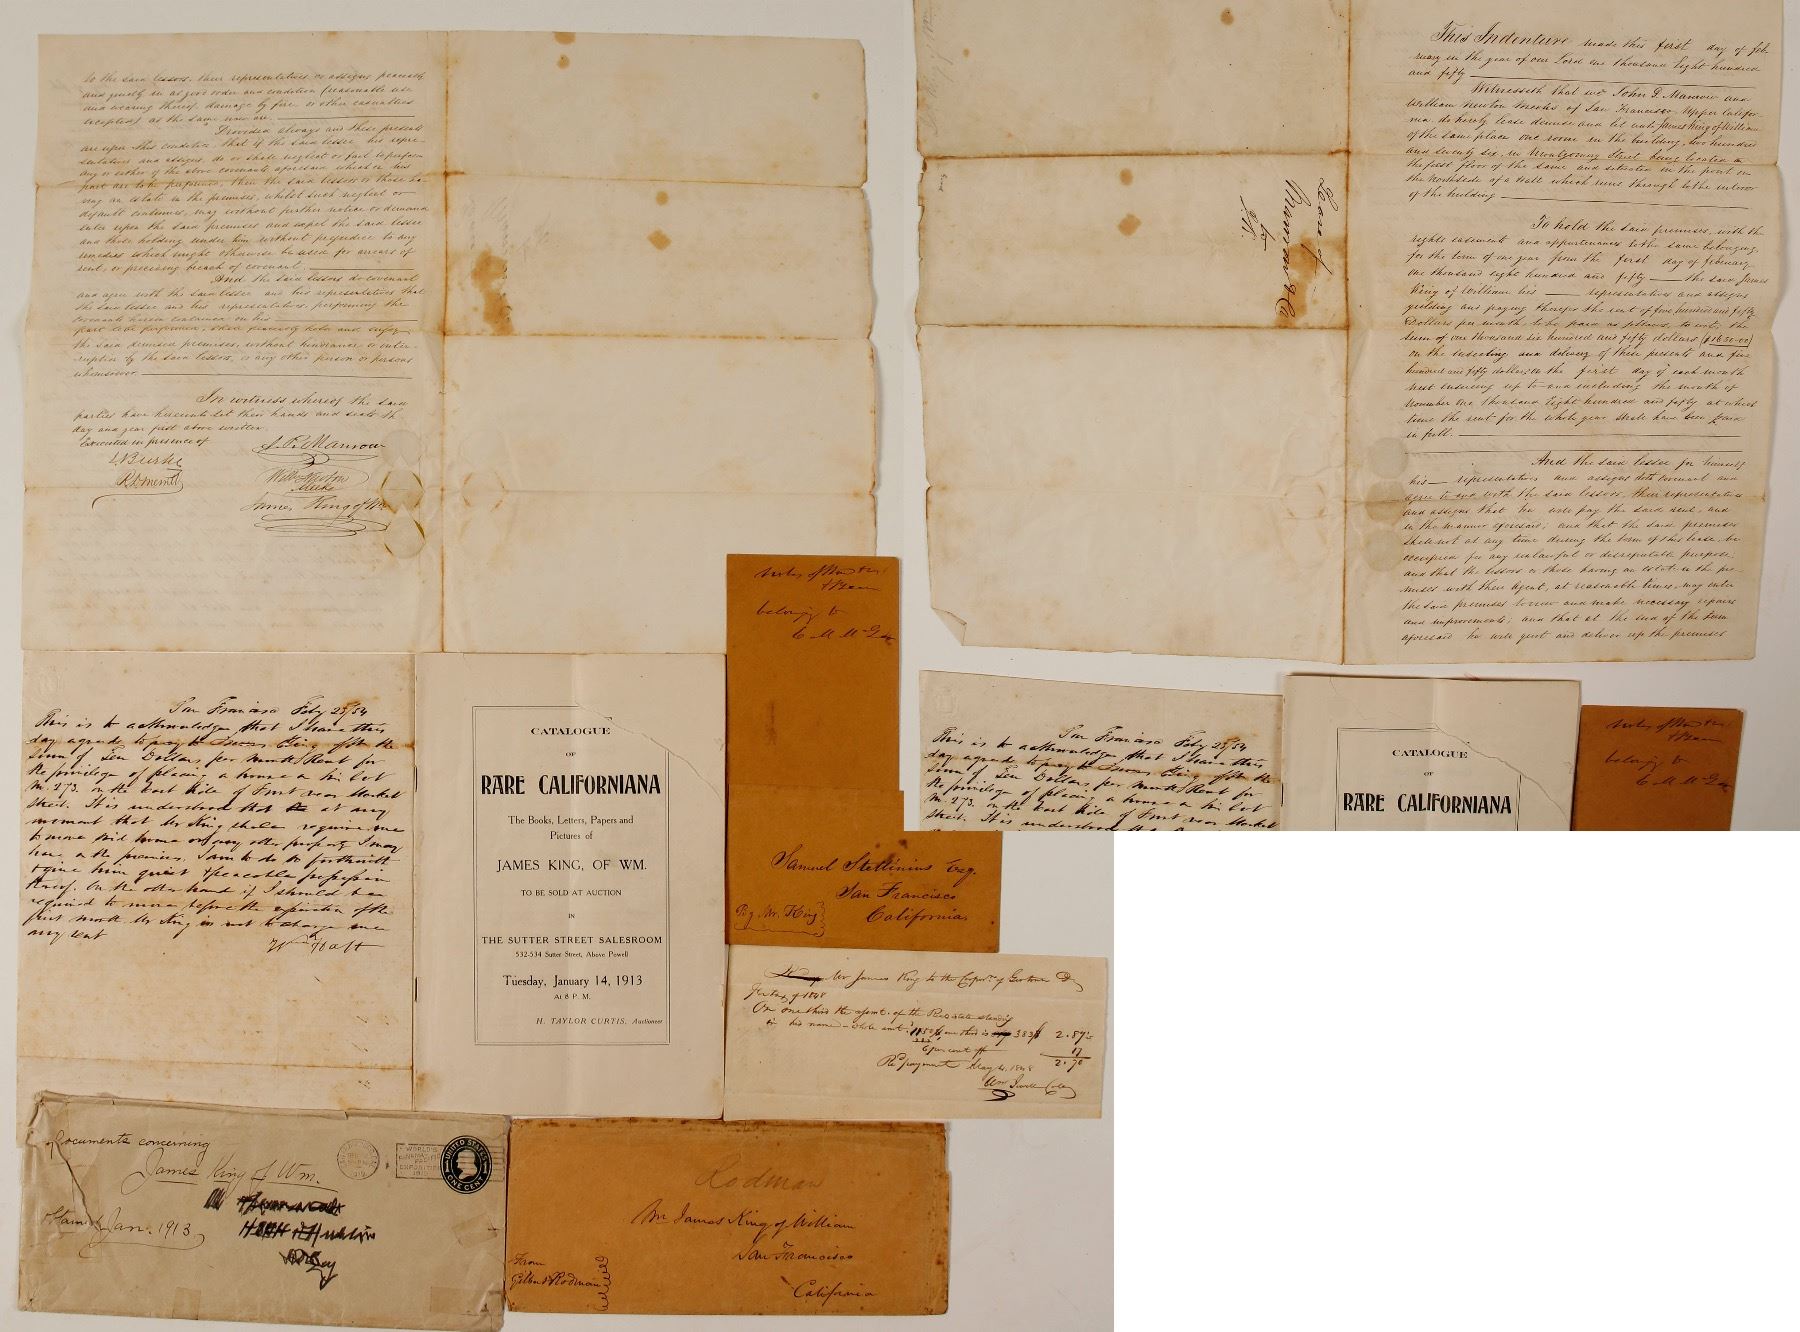 to the said lessors, their representatives or assigns peaceably
and quietly in as good order and condition (reasonable use
and wearing thereof, damage by fire or other casualties
excepted) as the same now are.
Provided always and these presents
are upon this condition, that if the said lessee his repre-
sentatives and assigns, do or shall neglect or fail to perform
any or either of the above covenants aforesaid which on his
part are to be performed, then the said lessors or those ha-
ving an estate in the premises, whilst such neglect or
default continues, may without further notice or demand
enter upon the said premises and expel the said lessee
and those holding under him without prejudice to any
remedies which might otherwise be used for arrears of
rent, or preceding breach of covenant.
And the said lessors do covenant
and agree with the said lessee and his representatives that
the said lessee and his representatives, performing the
covenants herein contained on his
part to be performed, shall peaceably hold and enjoy
the said demised premises, without hindrance or inter-
ruption by the said lessors, or any other person or persons
whomsoever.
In witness whereof the said
parties have hereunto set their hands and seals the
day and year first above written.
Executed in presence of
J. P. Manrow
Burke
Merrill
Wm Newton
Meeks
James King of Wm
This Indenture made this first day of Feb-
ruary in the year of our Lord one thousand Eight hundred
and fifty
Witnesseth that we John P. Manrow and
William Newton Meeks of San Francisco Upper Califor-
nia, do hereby lease demise and let unto James King of William
of the same place one room in the building, two hundred
and seventy six, in Montgomery Street being located on
the first floor of the same and situated in the front on
the North side of a Hall which runs through to the interior
of the building
To hold the said premises, with the
rights easements and appurtenances to the same belonging,
for the term of one year from the first day of February
one thousand eight hundred and fifty the said James
King of William his representatives and assigns
yielding and paying therefor the rent of five hundred and fifty
Dollars per month to be paid as follows, to wit, the
sum of one thousand six hundred and fifty dollars ($1650.00)
on the executing and delivery of these presents and five
hundred and fifty dollars on the first day of each month
next ensuing up to and including the month of
November one thousand Eight hundred and fifty at which
time the rent for the whole year shall have been paid
in full.
And the said lessee for himself
his representatives and assigns doth covenant and
agree to and with the said lessors, their representatives
and assigns that he will pay the said rent, and
in the manner aforesaid; and that the said premises
shall not at any time during the term of this lease, be
occupied for any unlawful or disreputable purpose;
and that the lessors or those having an estate in the pre-
mises with their Agent, at reasonable times, may enter
the said premises to view and make necessary repairs
and improvements; and that at the end of the term
aforesaid he will quit and deliver up the premises
Lease of
Manrow &
to
K.
belonging to
C M McGee
San Francisco Feby 25/54
This is to acknowledge that I have this
day agreed to pay to James King of Wm the
Sum of Ten Dollars per month Rent for
the privilege of placing a house on his lot
No. 273. on the East Side of Front near Market
Street. It is understood that at any
moment that Mr King shall require me
to move said house or any other property I may
have on the premises, I am to do so forthwith
& give him quiet & peaceable possession
thereof. On the other hand if I should be
required to move before the expiration of the
first month Mr King is not to charge me
any rent
CATALOGUE
OF
RARE CALIFORNIANA
The Books, Letters, Papers and
Pictures of
JAMES KING, OF WM.
TO BE SOLD AT AUCTION
IN
THE SUTTER STREET SALESROOM
532-534 Sutter Street, Above Powell
Tuesday, January 14, 1913
At 8 P. M.
H. TAYLOR CURTIS, Auctioneer
Samuel Stettinius Esq.
San Francisco
California
By Mr. King
Mr James King to the Corpn. of Geo town Dr
For tax of 1848
On one third the assmt. of the Real estate standing
in his name - whole amt. one third is 383 2.87
6 per cent off 17
2.70
Recd payment May 4, 1848
Wm Jewell Coll
San Francisco Feby 25/54
This is to acknowledge that I have this
day agreed to pay to James King of Wm the
Sum of Ten Dollars per month Rent for
the privilege of placing a house on his lot
No. 273. on the East Side of Front near Market
Street. It is understood that
CATALOGUE
OF
RARE CALIFORNIANA
belonging to
C M McGee
Documents concerning
James King of Wm.
Jan. 1913
WORLD'S
PANAMA PACIFIC
EXPOSITION
1915
UNITED STATES
ONE CENT
Rodman
Mr James King of William
San Francisco
California
From
Gilbert Rodman